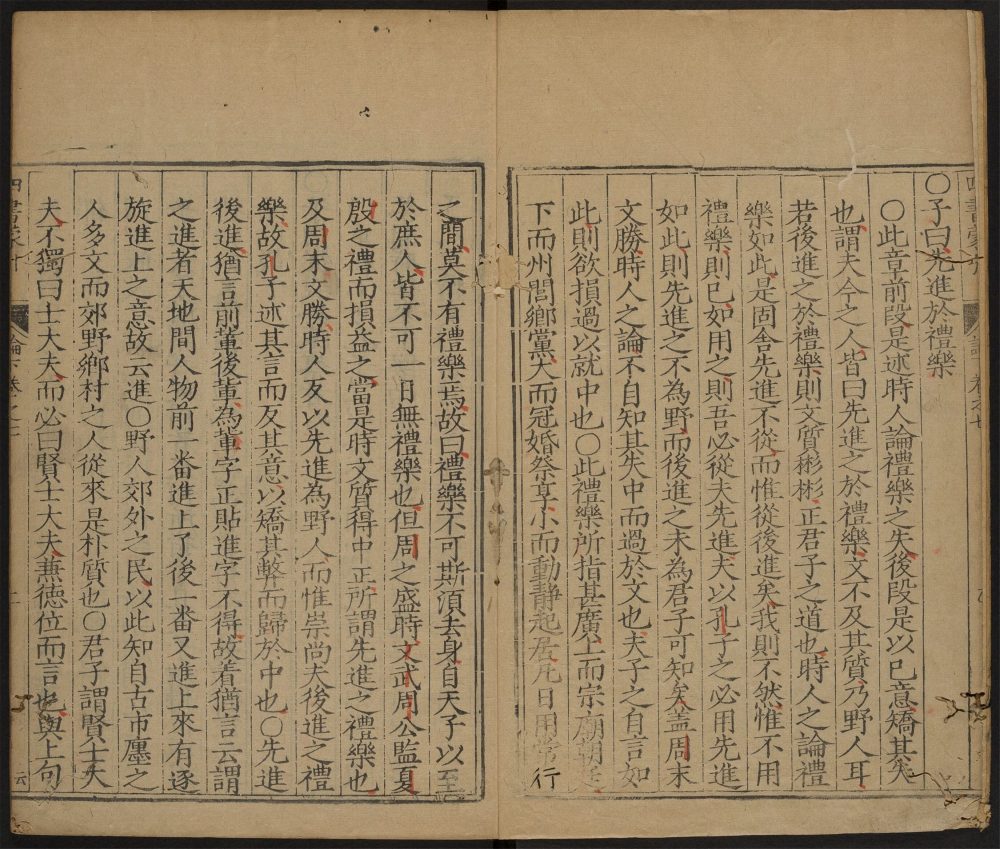 ○子曰先進於禮樂
○此章前段是述時人論禮樂之失後段是以已意矯其失
也謂夫今之人皆曰先進之於禮樂文不及其質乃野人耳
若後進之於禮樂則文質彬彬正君子之道也時人之論禮
樂如此是固舍先進不從而惟從後進矣我則不然惟不用
禮樂則已如用之則吾必從夫先進夫以孔子之必用先進
如此則先進之不為野而後進之未為君子可知矣盖周末
文勝時人之論不自知其失中而過於文也夫子之自言如
此則欲損過以就中也○此禮樂所指甚廣上而宗廟朝廷
下而州閭鄉黨大而冠婚祭享小而動靜起居凡日用常行
之間莫不有禮樂焉故曰禮樂不可斯須去身自天子以至
於庶人皆不可一日無禮樂也但周之盛時文武周公監夏
殷之禮而損益之當是時文質得中正所謂先進之禮樂也
及周末文勝時人反以先進為野人而惟崇尚夫後進之禮
樂故孔子述其言而反其意以矯其弊而歸於中也○先進
後進猶言前輩後輩為輩字正貼進字不得故着猶言云謂
之進者天地間人物前一番進上了後一番又進上來有逐
旋進上之意故云進○野人郊外之民以此知自古市廛之
人多文而郊野鄉村之人從來是朴質也○君子謂賢士大
夫不獨曰士大夫而必曰賢士大夫兼德位而言也與上句